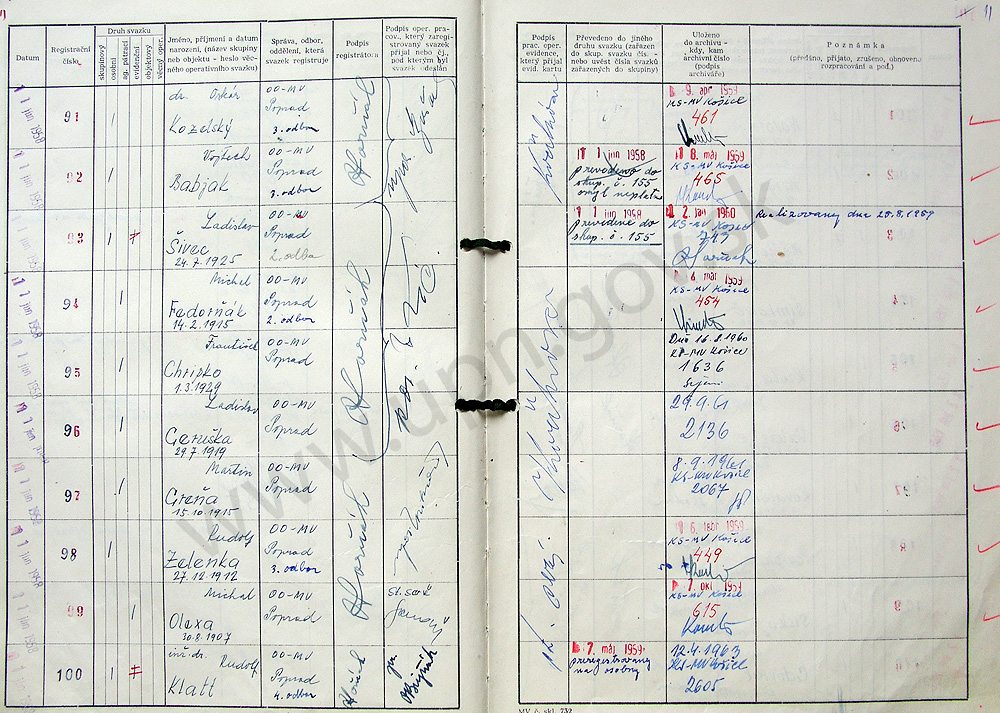 Datum
Registrační číslo
Druh svazku
skupinový
osobní
ag. pátrací
evidenční
objektový
věcný oper.
Jméno, příjmení a datum
narození, (název skupiny
neb objektu - heslo věc-
ného operativního svazku)
Správa, odbor,
oddělení, která
svazek registruje
Podpis
registrátora
Podpis oper. prac-
cov., který zaregi-
strovaný svazek
přijal nebo čj.,
pod kterým byl
svazek odeslán
Podpis
prac. oper.
evidence,
který přijal
evid. kartu
Převedeno do jiného
druhu svazku (zařazen
do skup. svazku čís. -
nebo uvést čísla svazků
zařazených do skupiny)
Uloženo
do archivu -
kdy, kam
archivní číslo
(podpis
archiváře)
Poznámka
(předáno, přijato, zrušeno, obnoveno,
rozpracování a pod.)
11
1 jun 1958
91
dr. Oskár
Kozelský
OO-MV
Poprad
3. odbor
9. apr 1959
KS-MV Košice
461
92
Vojtech
Babjak
OO-MV
Poprad
3. odbor
1 jun 1958
prevedeno do
skup. č. 155
omyl neplatí
8. máj 1959
KS-MV Košice
465
93
Ladislav
Šivec
24.7.1925
OO-MV
Poprad
2. odbor
1 jun 1958
prevedené do
skup. č. 155
2. jan 1960
KS-MV Košice
747
Realizovaný dňa 20.8.1959
94
Michal
Fedorňák
14.2.1915
OO-MV
Poprad
2. odbor
máj 1959
KS-MV Košice
454
95
František
Chripko
1.3.1929
OO-MV
Poprad
Dňa 16.8.1960
KS-MV Košice
1636
96
Ladislav
Geruška
29.7.1919
OO-MV
Poprad
29.9.61
2136
97
Martin
Greňa
15.10.1915
OO-MV
Poprad
8.9.1961
KS-MV Košice
2067
98
Rudolf
Zelenka
27.12.1912
OO-MV
Poprad
3. odbor
6. febr 1959
KS-MV Košice
449
99
Michal
Olexa
30.8.1907
OO-MV
Poprad
7. okt 1959
KS-MV Košice
615
100
inž. dr. Rudolf
Klatt
OO-MV
Poprad
4. odbor
7. máj 1959
preregistrovaný
na osobný
12.4.1963
KS-MV Košice
2605
Horňák
MV č. skl. 732
www.upn.gov.sk